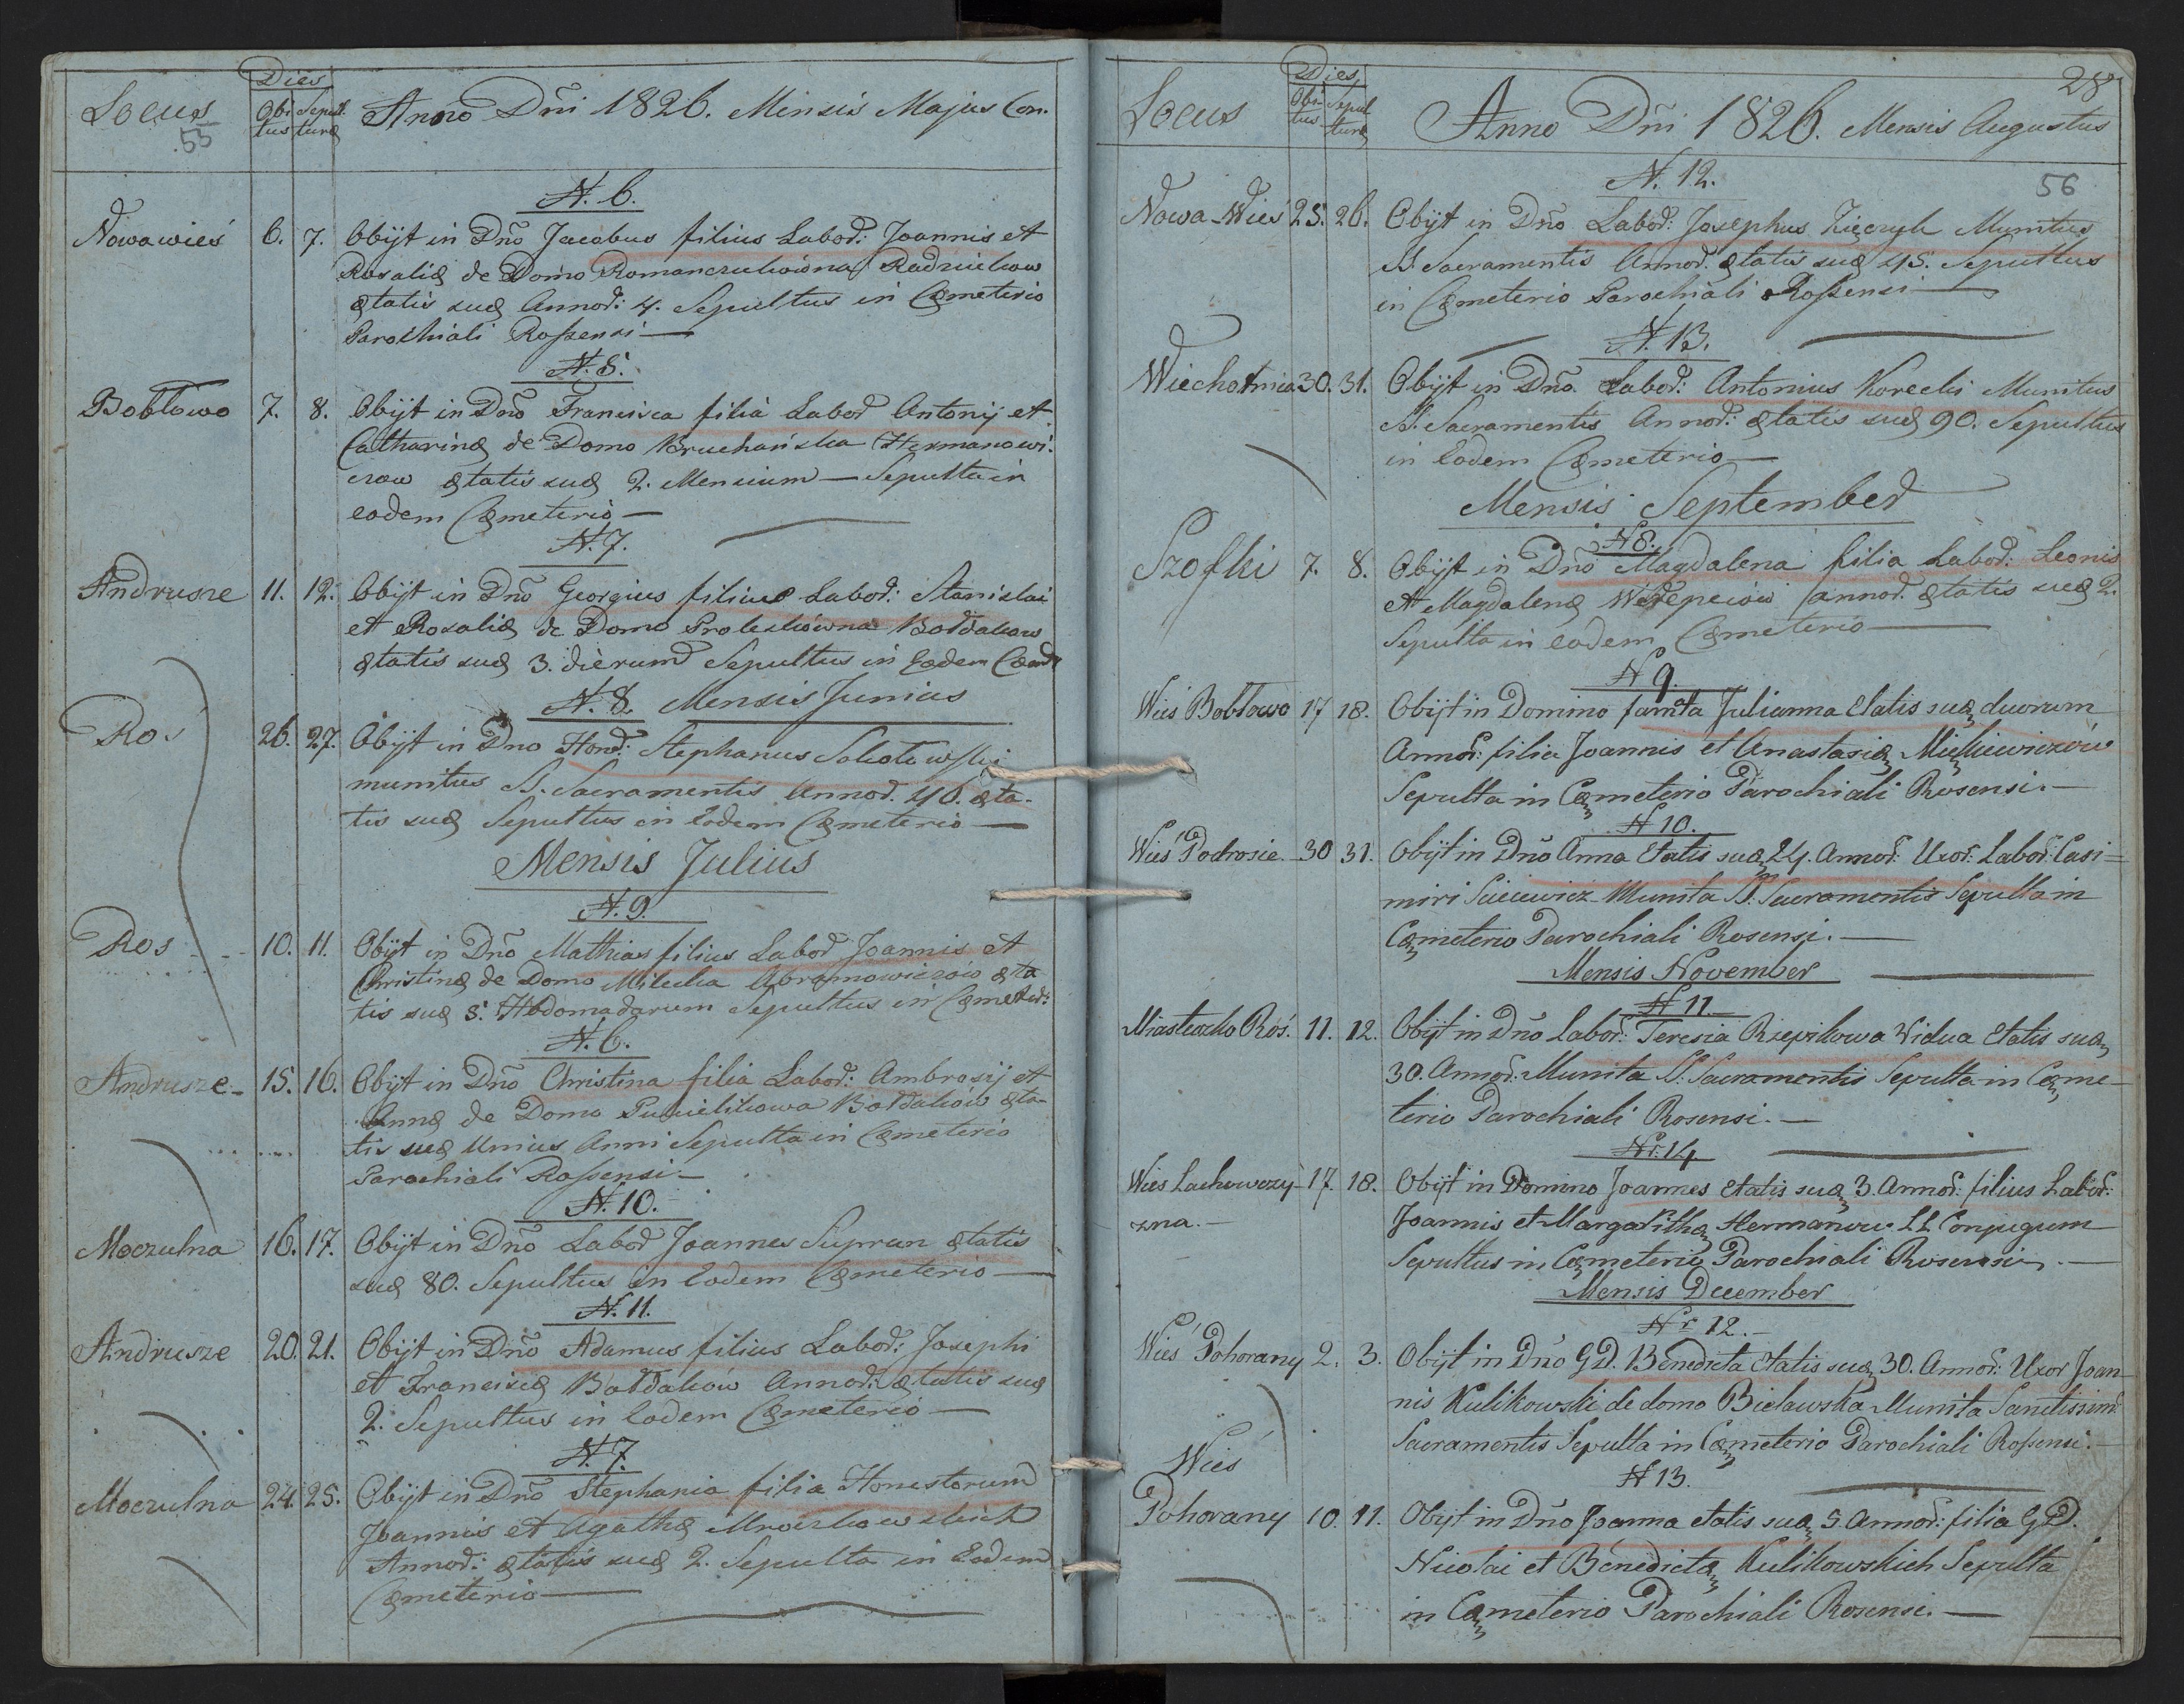 Locus
55
Dies
Obi Sepul
tus turæ
Anno Dñi 1826. Mensis Majus Con.
N. 6.
Nowawieś 6. 7. Obijt in Dño Jacobus filius Labod: Joannis et
Rosaliæ de Domo Romanczukówna Radziukow
ætatis suæ Annod: 4. Sepultus in Cæmeterio
Parochiali Rossensi —
N. 5.
Bobłowo 7. 8. Obijt in Dño Francisca filia Labod Antonij et
Catharinæ de Domo Hermanowi-
czow ætatis suæ 2. Mensium — Sepulta in
eodem Cæmeterio —
N. 7.
Andrusze 11. 12. Obijt in Dño Georgius filius Labod: Stanislai
et Rosaliæ de Domo Bołdakow
ætatis suæ 3. dierum Sepultus in Eodem
N. 8. Mensis Junius
Ros 26. 27. Obijt in Dno Honod: Stephanus
munitus S. Sacramentis Annod. 40. æta-
tis suæ Sepultus in Eodem Cæmeterio —
Mensis Julius
N. 9.
Ros 10. 11. Obijt in Dño Mathias filius Labod Joannis et
Christinæ de Domo Milecka Abramowiczow æta
tis suæ 5. Hebdomadarum Sepultus in Cæmeted:
N. 6.
Andrusze 15. 16. Obijt in Dño Christina filia Labod: Ambrosij et
Annæ de Domo Bołdakow æta-
tis suæ Unius Anni Sepulta in Cæmeterio
Parochiali Rossensi —
N. 10.
Moczulna 16. 17. Obijt in Dño Labod Joannes Supran ætatis
suæ 80. Sepultus in Eodem Cæmeterio —
N. 11.
Andrusze 20. 21. Obijt in Dño Adamus filius Labod: Josephi
et Franciscæ Bołdaków Annod: ætatis suæ
2. Sepultus in Eodem Cæmeterio —
N. 7.
Moczulna 24. 25. Obijt in Dño Stephania filia Honestorum
Joannis et Agathæ
Annod: ætatis suæ 2. Sepulta in Eodem
Cæmeterio —
Locus
Dies
Obi Sepul
tus turæ
Anno Dñi 1826. Mensis Augustus
28
56
N. 12.
Nowa Wieś 25. 26. Obijt in Dño Labod: Josephus Munitus
S. Sacramentis Annod. ætatis suæ 45. Sepultus
in Cæmeterio Parochiali Rossensi —
N. 13.
Wiechotnica 30. 31. Obijt in Dño Labod: Antonius Korecki Munitus
S. Sacramentis Annod: ætatis suæ 90. Sepultus
in Eodem Cæmeterio —
Mensis September
N 8.
Szofki 7. 8. Obijt in Dño Magdalena filia Labod: Leonis
et Magdalenæ annod. ætatis suæ 2.
Sepulta in eodem Cæmeterio —
N 9.
Wieś Bobłowo 17 18. Obijt in Domino Julianna Etatis suæ duorum
Annod: filia Joannis et Anastasiæ Mickiewiczow
Sepulta in Cæmeterio Parochiali Rosensi. —
N 10.
Wieś Podrosie 30 31. Obijt in Dño Anna Etatis suæ 24. Annod: Uxor: Labod: Casi=
miri Munita S. Sacramentis Sepulta in
Cæmeterio Parochiali Rosensi. —
Mensis November
N 11.
Miasteczko Roś. 11. 12. Obijt in Dño Labod: Teresia Rzepikowa Vidua Etatis suæ
30. Annod: Munita S. Sacramentis Sepulta in Cæme-
terio Parochiali Rosensi. —
Nr. 14
Wies Lachowczy- 17. 18. Obijt in Domino Joannes Etatis suæ 3. Annod: filius Labod:
zna. — Joannis et Margarithæ LL Conjugum
Sepultus in Cæmeterio Parochiali Rosensi. —
Mensis December
Nr 12.
Wieś Pohorany 2. 3. Obijt in Dño GD. Benedicta Etatis suæ 30. Annod: Uxor Joan-
nis Kulikowski de domo Bielawska Munita Sanctissimd
Sacramentis Sepulta in Cæmeterio Parochiali Rossensi. —
N 13.
Wieś
Pohorany 10. 11. Obijt in Dño Joanna etatis suæ 5 Annod: filia GD.
Nicolai et Benedictæ Kulikowskich Sepulta
in Cæmeterio Parochiali Rosensi. —